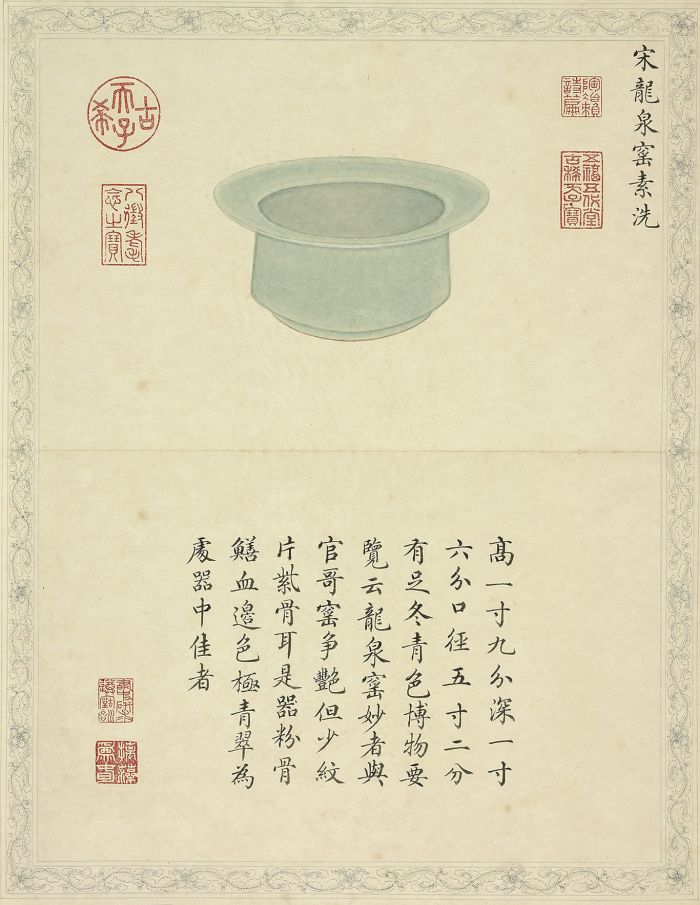 宋龍泉窰素洗
五福五代堂古稀天子寶
古希天子
八徵耄念之寶
高一寸九分深一寸
六分口徑五寸二分
有足冬青色博物要
覽云龍泉窰妙者與
官哥窰争艷但少紋
片紫骨耳是器粉骨
鱔血邊色極青翠為
處器中佳者